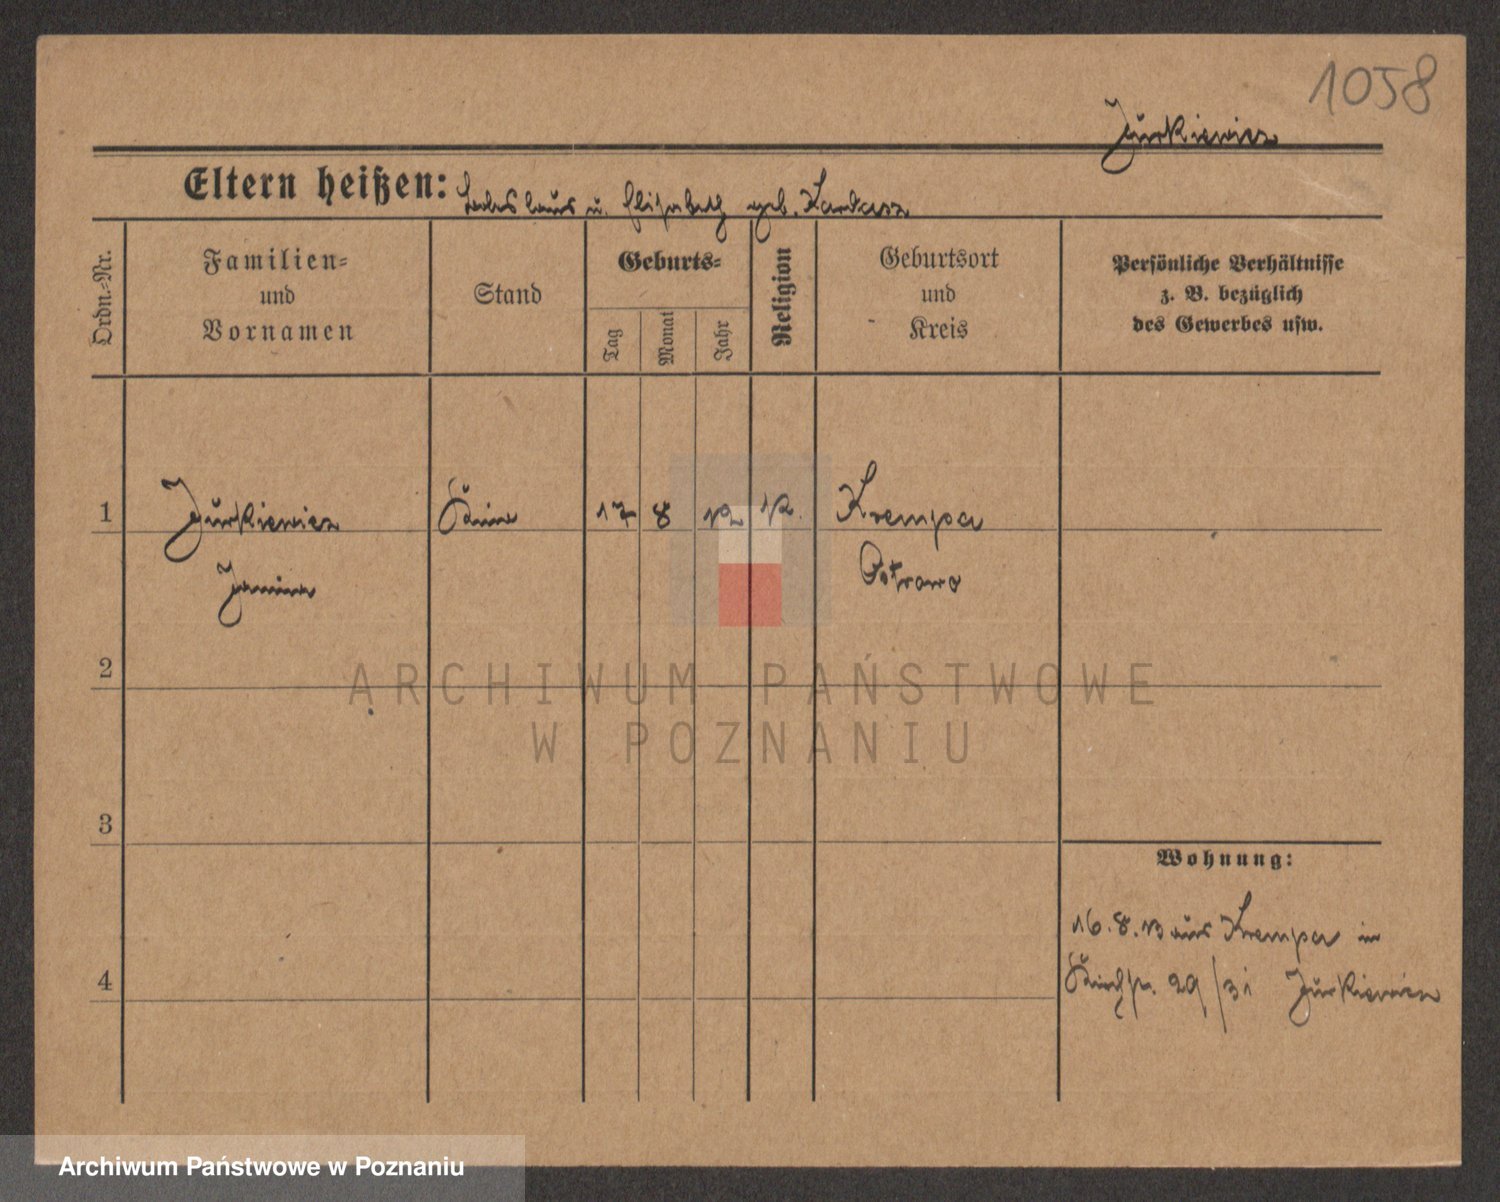 1058
Jurkiewicz
Eltern heißen: Ladislaus u. Elisabeth geb. Kardasz
Ordn.-Nr.
Familien-
und
Vornamen
Stand
Geburts-
Tag
Monat
Jahr
Religion
Geburtsort
und
Kreis
Persönliche Verhältnisse
z. B. bezüglich
des Gewerbes usw.
1 Jurkiewicz 17 8 12 K. Krempa
Janina Ostrowo
2
ARCHIWUM PAŃSTWOWE
W POZNANIU
3
Wohnung:
16.8.13 aus Krempa in
29/31 Jurkiewicz
4
Archiwum Państwowe w Poznaniu